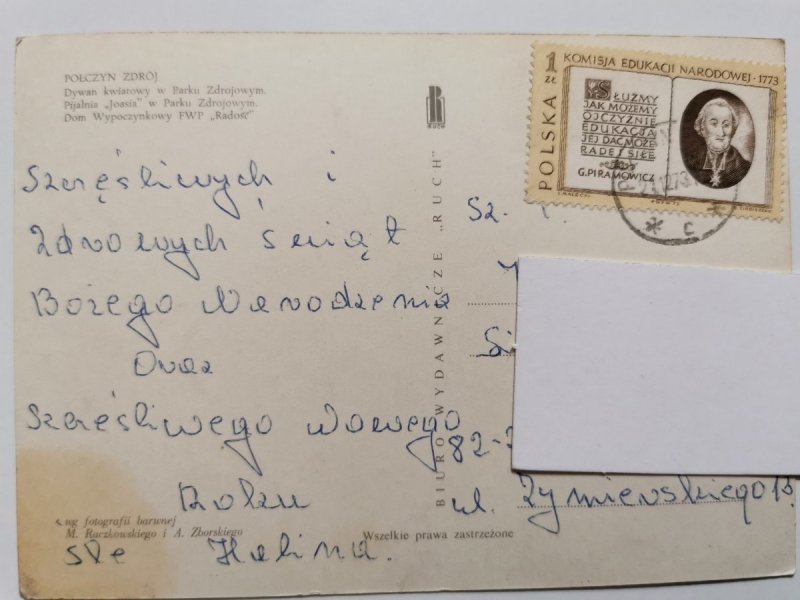 POŁCZYN ZDRÓJ
Dywan kwiatowy w Parku Zdrojowym.
Pijalnia „Joasia" w Parku Zdrojowym.
Dom Wypoczynkowy FWP „Radość"
RUCH
1 ZŁ
POLSKA
KOMISJA EDUKACJI NARODOWEJ · 1773
SŁUŻMY
JAK MOŻEMY
OJCZYŹNIE
EDUKACJA
JEJ DAĆ MOŻE
RADĘ I SIŁĘ
G. PIRAMOWICZ
C
Szczęśliwych i
Zdrowych świąt
Bożego Narodzenia
Oraz
Szczęśliwego Nowego
Roku
śle Halina.
BIURO WYDAWNICZE „RUCH"
Sz.
82-
ul. Żymierskiego
wg fotografii barwnej
M. Raczkowskiego i A. Zborskiego
Wszelkie prawa zastrzeżone